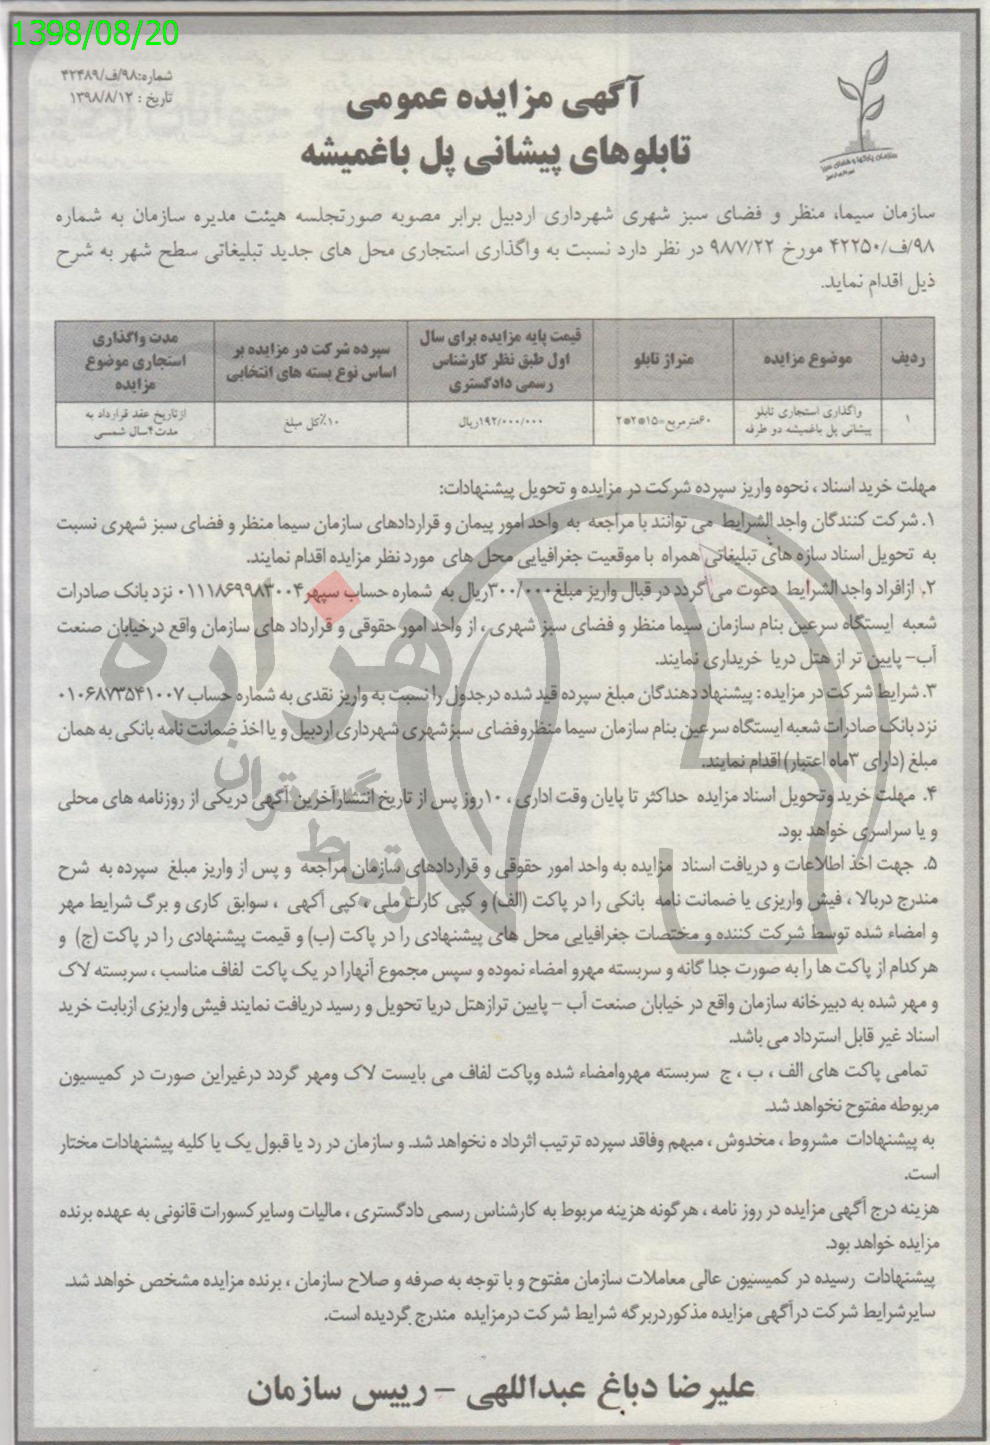 1398/08/20
شماره:۹۸/ف/۴۲۴۸۹
تاریخ : ۱۳۹۸/۸/۱۲
آگهی مزایده عمومی
تابلوهای پیشانی پل باغمیشه
سازمان سیما، منظر و فضای سبز شهری شهرداری اردبیل برابر مصوبه صورتجلسه هیئت مدیره سازمان به شماره
۹۸/ف/۴۲۲۵۰ مورخ ۹۸/۷/۲۲ در نظر دارد نسبت به واگذاری استجاری محل های جدید تبلیغاتی سطح شهر به شرح
ذیل اقدام نماید.
ردیف
موضوع مزایده
متراژ تابلو
قیمت پایه مزایده برای سال
اول طبق نظر کارشناس
رسمی دادگستری
سپرده شرکت در مزایده بر
اساس نوع بسته های انتخابی
مدت واگذاری
استجاری موضوع
مزایده
۱
واگذاری استجاری تابلو
پیشانی پل باغمیشه دو طرفه
۶۰مترمربع=۱۵*۲*۲
۱۹۲/۰۰۰/۰۰۰ریال
۱۰٪کل مبلغ
ازتاریخ عقد قرارداد به
مدت۴سال شمسی
مهلت خرید اسناد ، نحوه واریز سپرده شرکت در مزایده و تحویل پیشنهادات:
۱. شرکت کنندگان واجد الشرایط می توانند با مراجعه به واحد امور پیمان و قراردادهای سازمان سیما منظر و فضای سبز شهری نسبت
به تحویل اسناد سازه های تبلیغاتی همراه با موقعیت جغرافیایی محل های مورد نظر مزایده اقدام نمایند.
۲. ازافراد واجد الشرایط دعوت می گردد در قبال واریز مبلغ ۳۰۰/۰۰۰ریال به شماره حساب سپهر۰۱۱۱۸۶۹۹۸۳۰۰۴ نزد بانک صادرات
شعبه ایستگاه سرعین بنام سازمان سیما منظر و فضای سبز شهری ، از واحد امور حقوقی و قرارداد های سازمان واقع درخیابان صنعت
آب- پایین تر از هتل دریا خریداری نمایند.
۳. شرایط شرکت در مزایده : پیشنهاد دهندگان مبلغ سپرده قید شده درجدول را نسبت به واریز نقدی به شماره حساب ۰۱۰۶۸۷۳۵۴۱۰۰۷
نزد بانک صادرات شعبه ایستگاه سرعین بنام سازمان سیما منظروفضای سبزشهری شهرداری اردبیل و یا اخذ ضمانت نامه بانکی به همان
مبلغ (دارای ۳ماه اعتبار) اقدام نمایند.
۴. مهلت خرید وتحویل اسناد مزایده حداکثر تا پایان وقت اداری ، ۱۰روز پس از تاریخ انتشارآخرین آگهی دریکی از روزنامه های محلی
و یا سراسری خواهد بود.
۵. جهت اخذ اطلاعات و دریافت اسناد مزایده به واحد امور حقوقی و قراردادهای سازمان مراجعه و پس از واریز مبلغ سپرده به شرح
مندرج دربالا ، فیش واریزی یا ضمانت نامه بانکی را در پاکت (الف) و کپی کارت ملی ، کپی آگهی ، سوابق کاری و برگ شرایط مهر
و امضاء شده توسط شرکت کننده و مختصات جغرافیایی محل های پیشنهادی را در پاکت (ب) و قیمت پیشنهادی را در پاکت (ج) و
هرکدام از پاکت ها را به صورت جدا گانه و سربسته مهرو امضاء نموده و سپس مجموع آنهارا در یک پاکت لفاف مناسب ، سربسته لاک
و مهر شده به دبیرخانه سازمان واقع در خیابان صنعت آب - پایین ترازهتل دریا تحویل و رسید دریافت نمایند فیش واریزی ازبابت خرید
اسناد غیر قابل استرداد می باشد.
تمامی پاکت های الف ، ب ، ج سربسته مهروامضاء شده وپاکت لفاف می بایست لاک ومهر گردد درغیراین صورت در کمیسیون
مربوطه مفتوح نخواهد شد.
به پیشنهادات مشروط ، مخدوش ، مبهم وفاقد سپرده ترتیب اثرداد ه نخواهد شد. و سازمان در رد یا قبول یک یا کلیه پیشنهادات مختار
است.
هزینه درج آگهی مزایده در روز نامه ، هرگونه هزینه مربوط به کارشناس رسمی دادگستری ، مالیات وسایرکسورات قانونی به عهده برنده
مزایده خواهد بود.
پیشنهادات رسیده در کمیسیون عالی معاملات سازمان مفتوح و با توجه به صرفه و صلاح سازمان ، برنده مزایده مشخص خواهد شد.
سایرشرایط شرکت درآگهی مزایده مذکوردربرگه شرایط شرکت درمزایده مندرج گردیده است.
علیرضا دباغ عبداللهی - رییس سازمان
هزاره